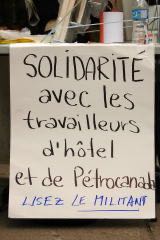 SOLIDARITE
avec les
travailleurs
d'hôtel
et de Pétrocanada
LISEZ LE MILITANT